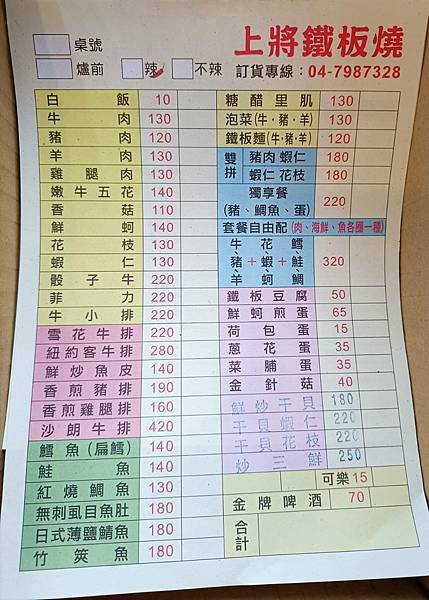 桌號
爐前 辣 不辣
上將鐵板燒
訂貨專線：04-7987328
白飯 10
牛肉 130
豬肉 120
羊肉 130
雞腿肉 130
嫩牛五花 140
香菇 110
鮮蚵 140
花枝 130
蝦仁 130
骰子牛 220
菲力 220
牛小排 220
雪花牛排 220
紐約客牛排 280
鮮炒魚皮 140
香煎豬排 190
香煎雞腿排 160
沙朗牛排 420
鱈魚(扁鱈) 140
鮭魚 140
紅燒鯛魚 130
無刺虱目魚肚 180
日式薄鹽鯖魚 180
竹筴魚 180
糖醋里肌 130
泡菜(牛·豬·羊) 130
鐵板麵(牛·豬·羊) 120
雙拼 豬肉 蝦仁 180
蝦仁 花枝 180
獨享餐
(豬、鯛魚、蛋) 220
套餐自由配 (肉、海鮮、魚各圈一種)
牛、豬、羊+花、蝦、蚵+鱈、鮭、鯛 320
鐵板豆腐 50
鮮蚵煎蛋 65
荷包蛋 15
蔥花蛋 35
菜脯蛋 35
金針菇 40
鮮炒干貝 180
干貝蝦仁 220
干貝花枝 220
炒三鮮 250
可樂 15
金牌啤酒 70
合計